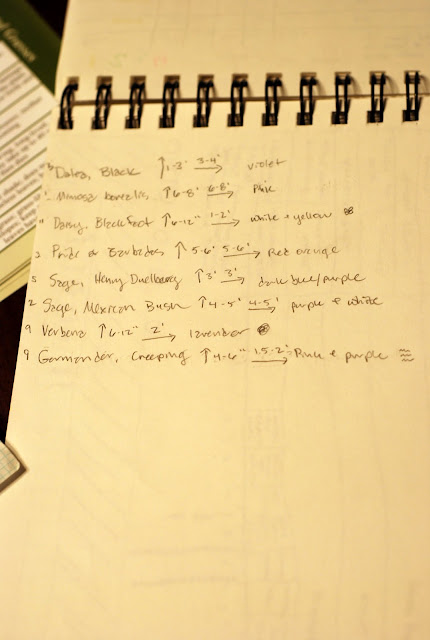 Dalea, Black ↑1-3' 3-4' → violet
Mimosa borealis, ↑6-8' 6-8' → Pink
Daisy, Blackfoot ↑6-12" 1-2' → white + yellow
3 Pride of Barbados ↑5-6' 5-6' → Red orange
5 Sage, Henry Duelberg ↑3' 3' → dark blue/purple
2 Sage, Mexican Bush ↑4-5' 4-5' → purple + white
9 Verbena ↑6-12" 2' → lavendar
9 Germander, Creeping ↑4-6" 1.5-2' → Pink + purple